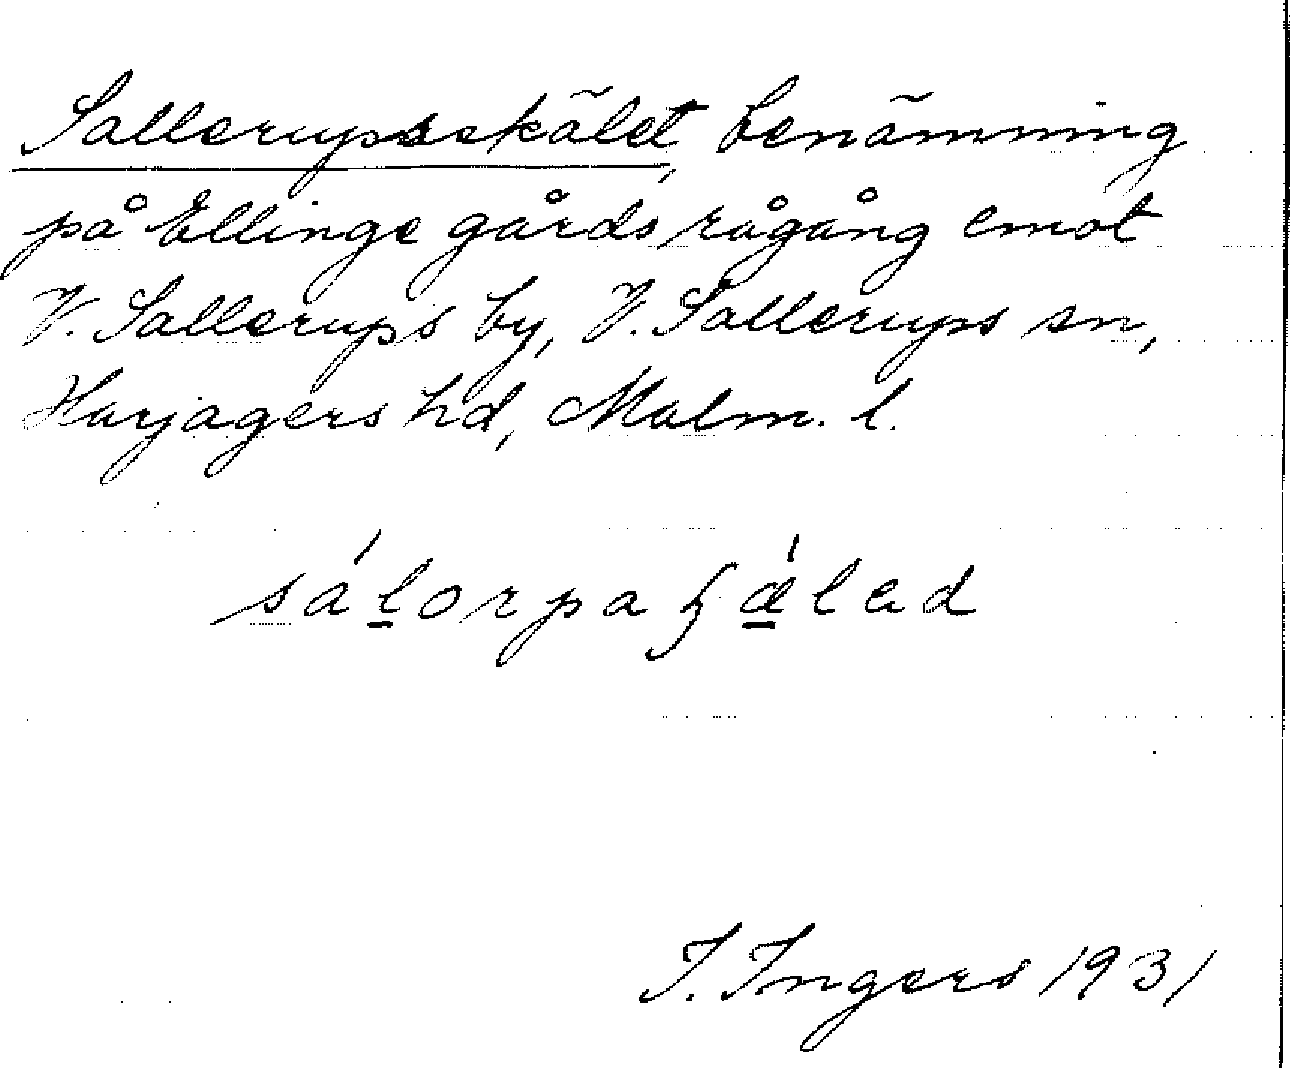 Sallerupsskälet, benämning
på Ellinge gårds rågång emot
V. Sallerups by, V. Sallerups sn,
Harjagers hd, Malm. l.
I. Ingers 1931